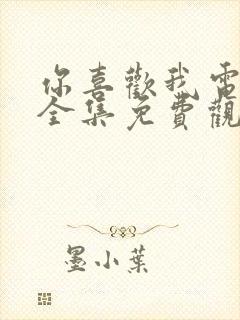 你喜歡我電
全集免費觀
墨小葉